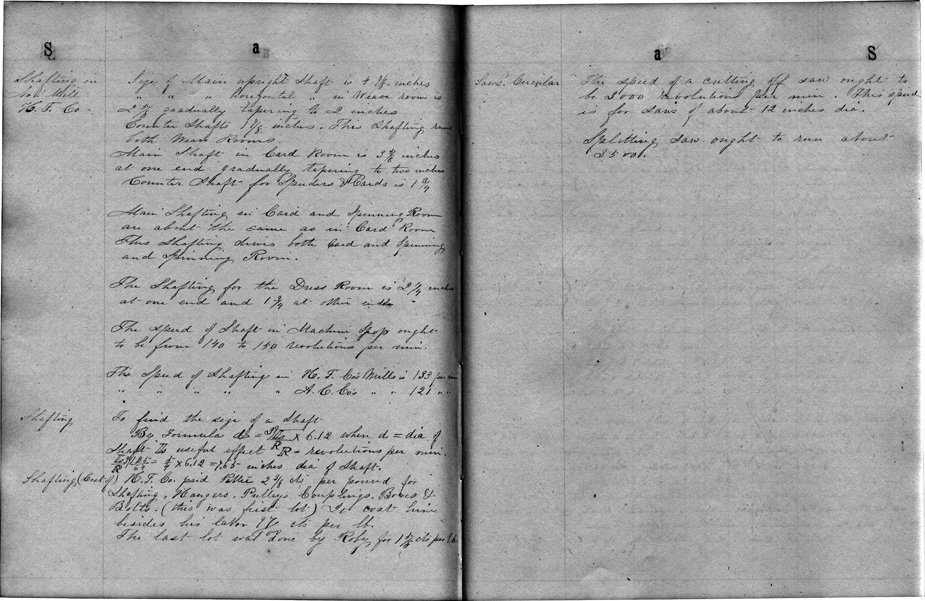 S a
Shafting in Size of Main upright Shaft is 4 1/8 inches
New Mill " " " Horizontal " in Weave room is
H. F. Co. 2 7/8 gradually tapering to 2 inches
Counter Shafts 1 7/8 inches. This Shafting runs
both Weave Rooms
Main Shaft in Card Room is 3 3/8 inches
at one end gradually tapering to two inches
Counter Shaft for Speeders & Cards is 1 3/4
Main Shafting in Card and Spinning Room
are about the same as in Card Room
This Shafting drives both Card and Spinning
and Spinning Room.
The Shafting for the Dress Room is 2 1/4 inches
at one end and 1 3/4 at other end "
The Speed of Shaft in Machine Shop ought
to be from 140 to 150 revolutions per min.
The Speed of Shafting in H. F. Co's Mills is 133 per min
" " " " " A. C. Co's " " 121 " "
Shafting To find the size of a Shaft
By Formula d = × 6.12 when d = dia of
Shaft useful effect R = revolutions per min.
× 6.12 = 7.65 inches dia of Shaft.
Shafting (Cost of) H. F. Co. paid 2 7/8 cts per pound for
Shafting, Hangers, Pulleys, Couplings, Boxes &
Bolts. (this was first lot) It cost him
besides his labor cts per lb.
The last lot was done by for cts per lb
a S
Saws. Circular The speed of a cutting off saw ought to
be 3000 revolutions per min. This speed
is for Saws of about 12 inches dia.
Splitting Saw ought to run about
3500.